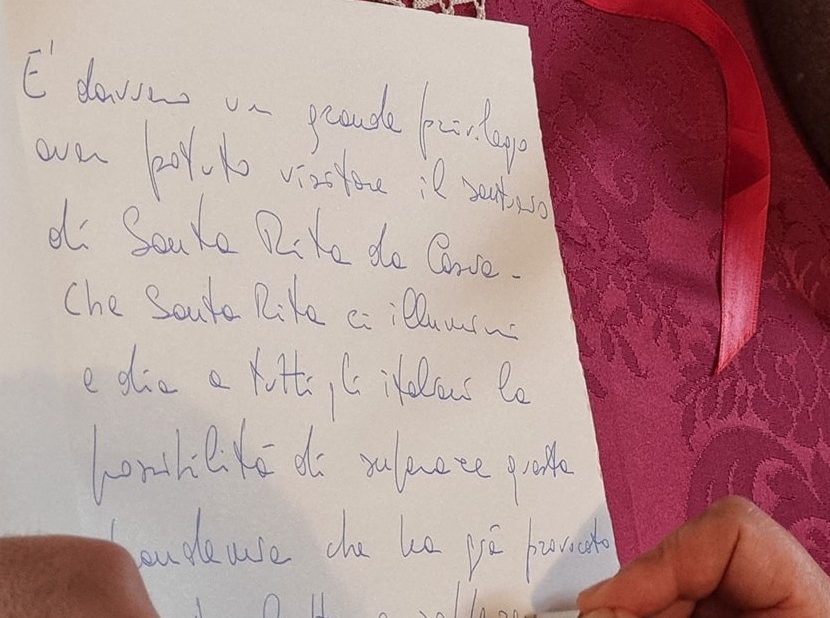 E' davvero un grande privilegio
aver potuto visitare il santuario
di Santa Rita da Cascia -
Che Santa Rita ci illumini
e dia a tutti gli italiani la
possibilità di superare questa
pandemia che ha già provocato